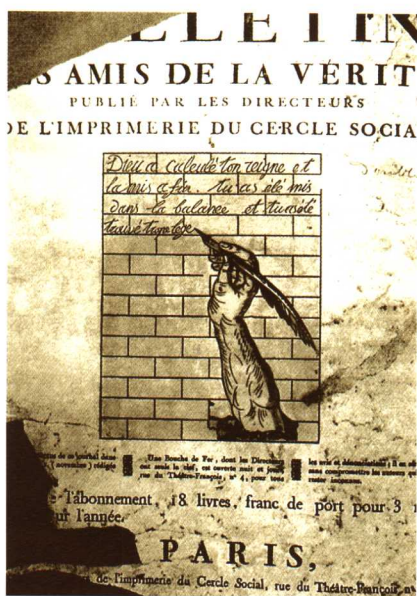 LLETIN
S AMIS DE LA VÉRIT
PUBLIÉ PAR LES DIRECTEURS
DE L'IMPRIMERIE DU CERCLE SOCIA
Dieu a calculé ton reigne et
la mis a fin. tu as élé mis
dans la balance et tu as été
trouvé
de ce journal dans
(novembre) rédigée
Une Bouche de Fer, dont les Directeurs
ont seuls la clef, est ouverte nuit et jour,
rue du Théâtre-François, n° 4, pour tous
les avis et dénonciations; il en
sans compromettre les auteurs qui
rester inconnus.
l'abonnement, 18 livres, franc de port pour 3
l'année.
PARIS,
de l'imprimerie du Cercle Social, rue du Théâtre-François, n